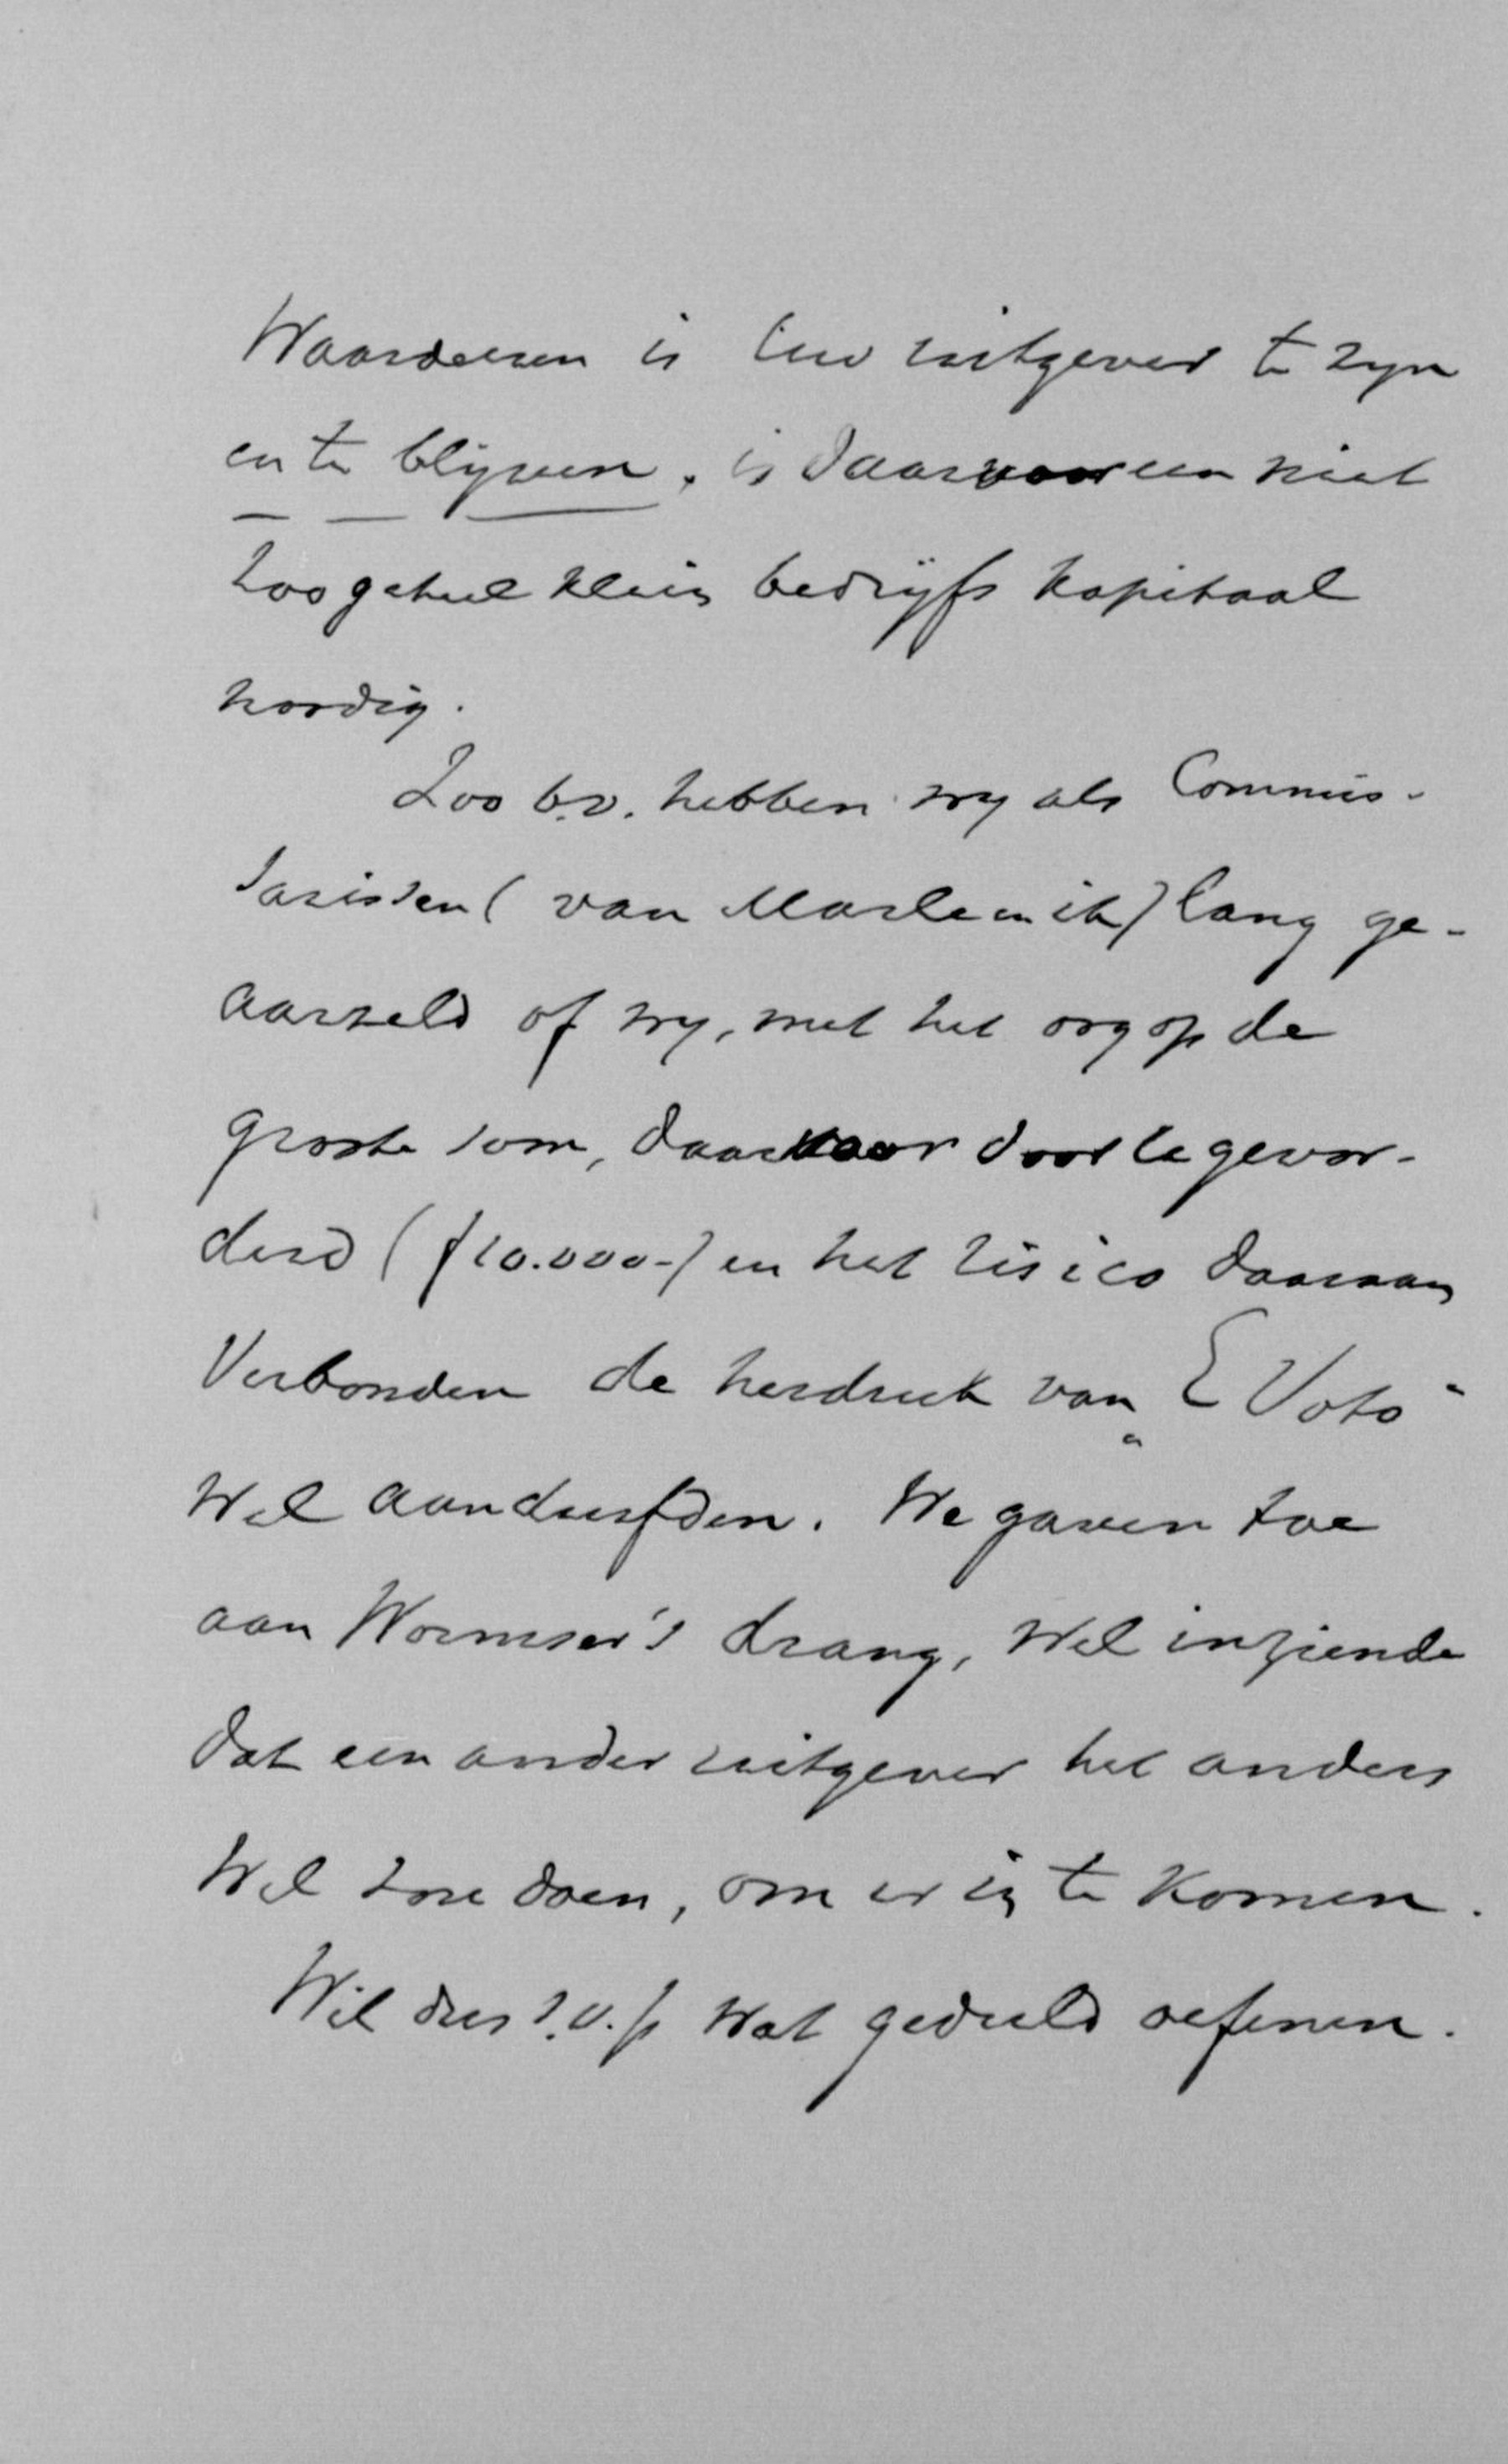 Waardeeren is Uw uitgever te zyn
en te blijven, is daarvoor een niet
zoo geheel klein bedrijfs kapitaal
noodig.
Zoo b.v. hebben wy als Commis-
sarissen (van Marle en ik) lang ge-
aarzeld of wy, met het oog op de
groote som, daarvoor door te gevor-
derd (f 10.000-) en het risico daaraan
Verbonden de herdruk van „E Voto"
Wel aandurfden. We gaven toe
aan Wormser's drang, wel inziende
dat een ander uitgever het anders
Wel zou doen, om er in te Komen.
Wil dus s.v.p. wat geduld oefenen.